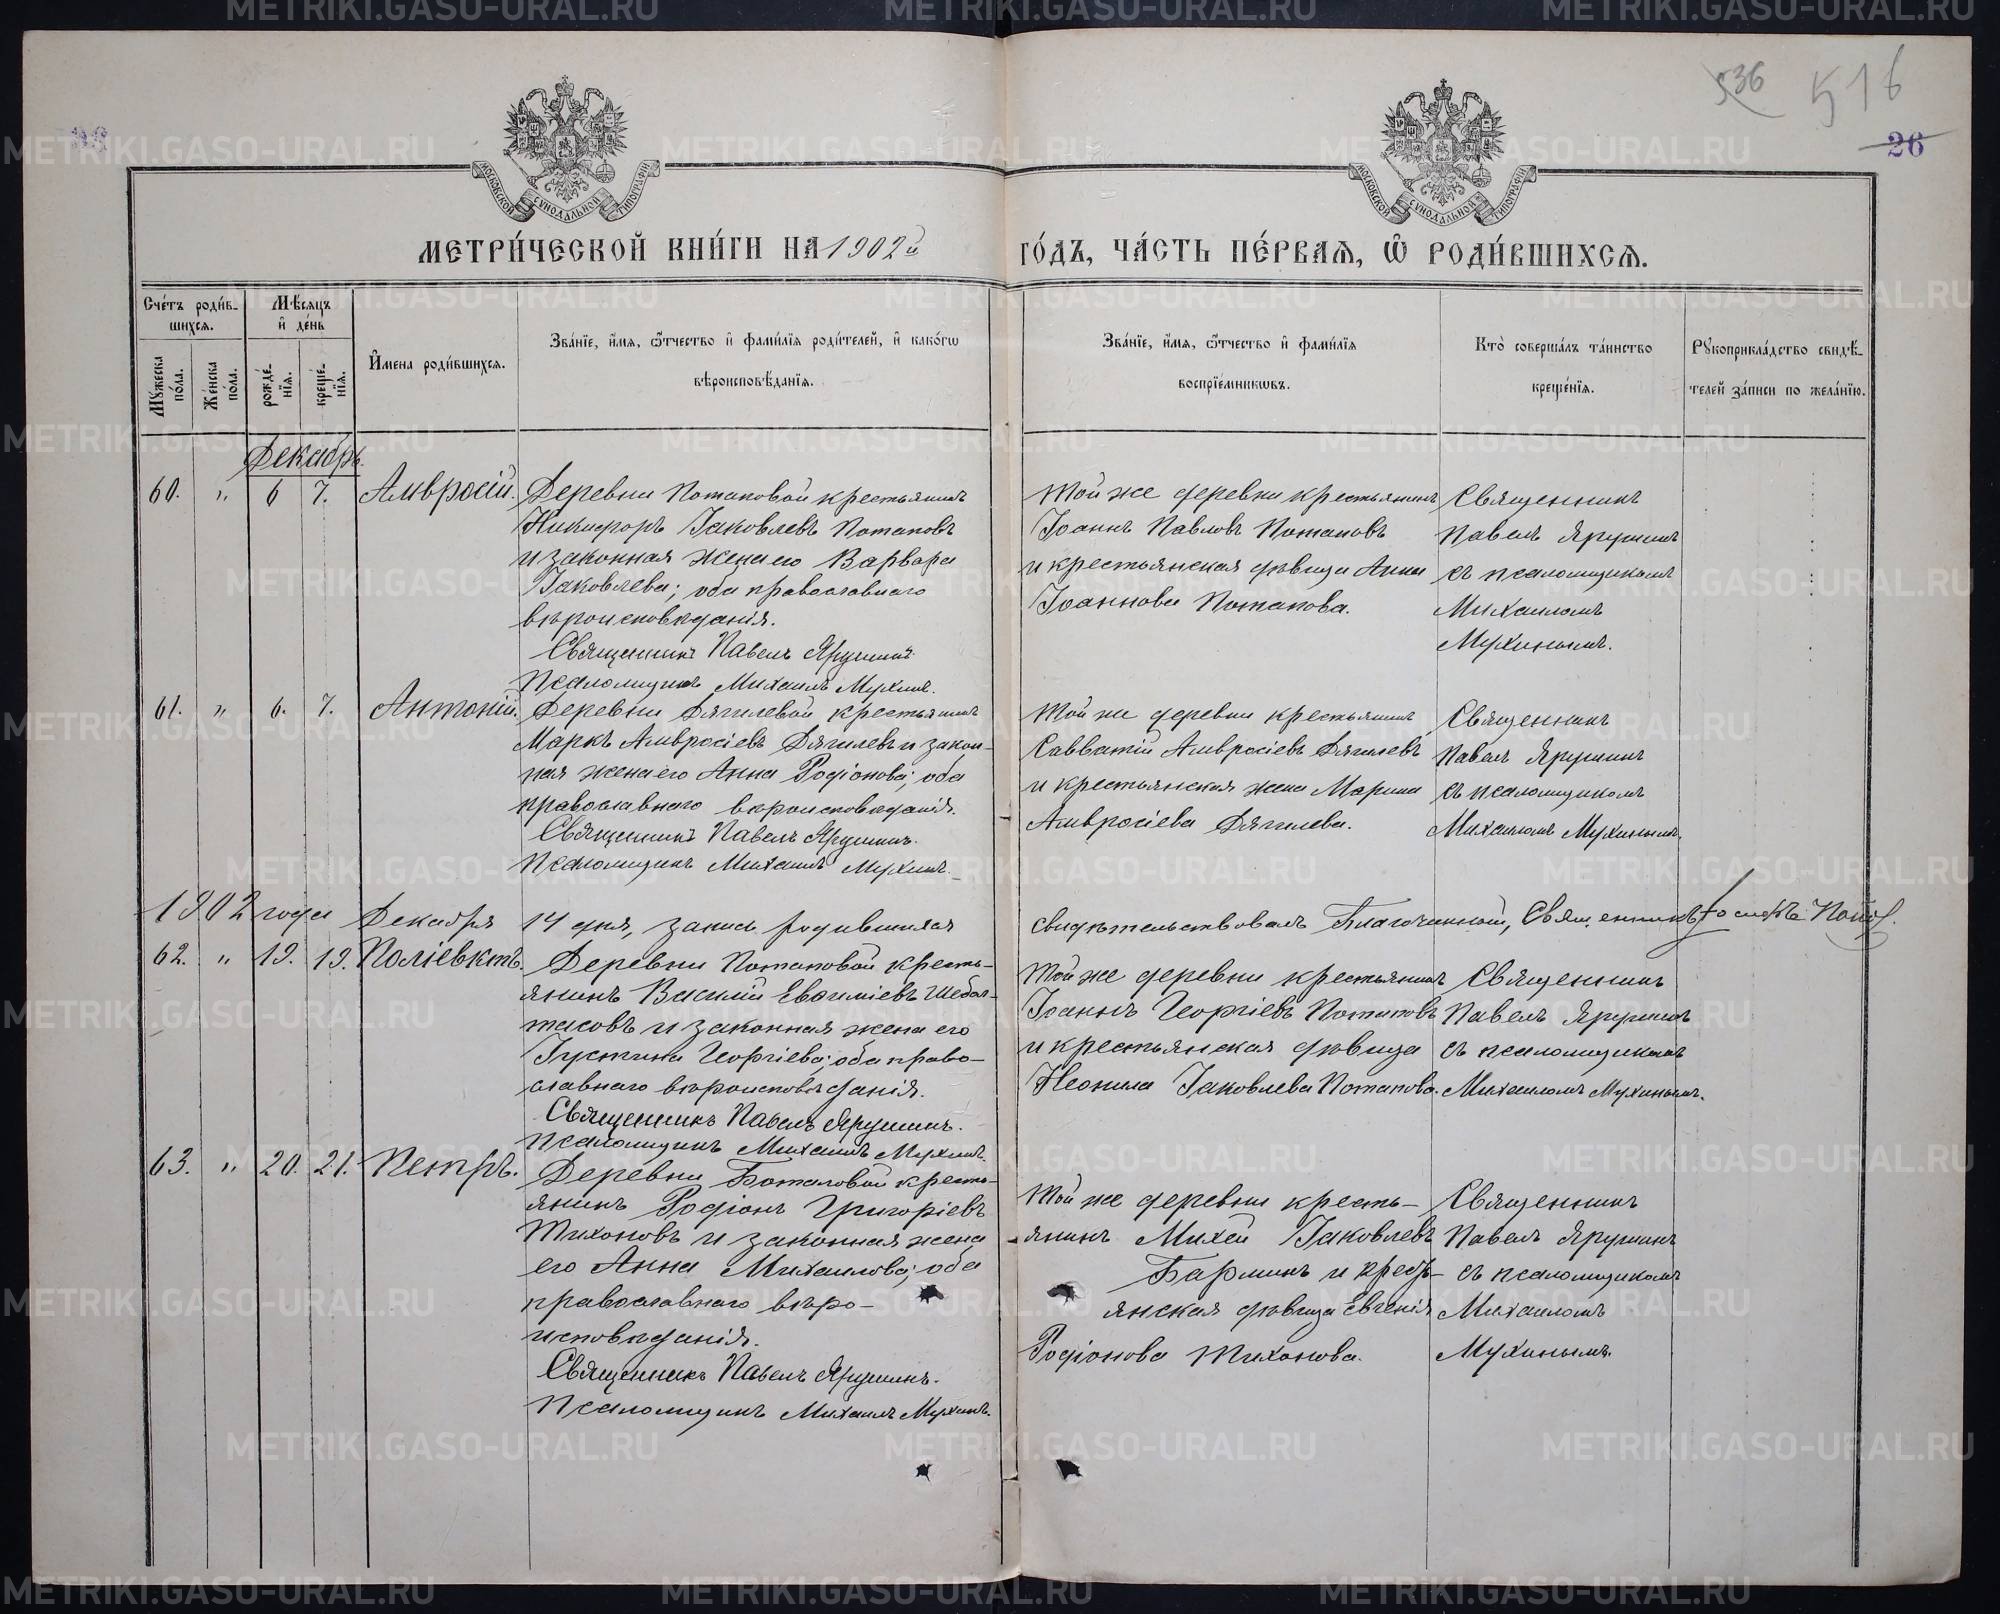 536 516
26
МОСКОВСКОЙ СѴНОДАЛЬНОЙ ТИПОГРАФІИ
МОСКОВСКОЙ СѴНОДАЛЬНОЙ ТИПОГРАФІИ
МЕТРИ́ЧЕСКОЙ КНИ́ГИ НА 1902й ГО́ДЪ, ЧА́СТЬ ПЕ́РВАѦ, Ѡ РОДИ́ВШИХСѦ.
Сче́тъ роди́в-
шихсѧ.
Мꙋжеска по́ла.
Же́нска по́ла.
Мѣ́сѧцъ
и҆ де́нь
рожде́-
нїѧ.
креще́-
нїѧ.
И҆мена роди́вшихсѧ.
Зва́нїе, и҆́мѧ, ѻ҆́тчество и҆ фами́лїѧ роди́телей, и҆ како́гѡ
вѣроисповѣ́данїѧ.
Зва́нїе, и҆́мѧ, ѻ҆́тчество и҆ фами́лїѧ
воспрїе́мникѡвъ.
Кто̀ соверша́лъ та́инство
креще́нїѧ.
Рꙋкоприкла́дство свидѣ́-
телей за́писи по жела́нїю.
Декабрь.
60. „ 6 7. Амвросій.
Деревни Потаповой крестьянинъ
Никифоръ Іаковлевъ Потаповъ
и законная жена его Варвара
Іаковлева; оба православнаго
вѣроисповѣданія.
Священникъ Павелъ Ярушинъ.
Псаломщикъ Михаилъ Мухинъ.
Той же деревни крестьянинъ
Іоаннъ Павловъ Потаповъ
и крестьянская дѣвица Анна
Іоаннова Потапова.
Священникъ
Павелъ Ярушинъ
съ псаломщикомъ
Михаиломъ
Мухинымъ.
61. „ 6. 7. Антоній.
Деревни Дягилевой крестьянинъ
Маркъ Амвросіевъ Дягилевъ и закон-
ная жена его Анна Родіонова; оба
православнаго вѣроисповѣданія.
Священникъ Павелъ Ярушинъ.
Псаломщикъ Михаилъ Мухинъ.
Той же деревни крестьянинъ
Савватій Амвросіевъ Дягилевъ
и крестьянская жена Марина
Амвросіева Дягилева.
Священникъ
Павелъ Ярушинъ
съ псаломщикомъ
Михаиломъ Мухинымъ.
1902 года Декабря 14 дня, запись родившихся свидѣтельствовалъ Благочинный, Священникъ Іосифъ
62. „ 19. 19. Поліевктъ.
Деревни Потаповой кресть-
янинъ Василій Евѳиміевъ Шебал-
тасовъ и законная жена его
Іустина Георгіева; оба право-
славнаго вѣроисповѣданія.
Священникъ Павелъ Ярушинъ.
Псаломщикъ Михаилъ Мухинъ.
Той же деревни крестьянинъ
Іоаннъ Георгіевъ Потаповъ
и крестьянская дѣвица
Неонила Іаковлева Потапова.
Священникъ
Павелъ Ярушинъ
съ псаломщикомъ
Михаиломъ Мухинымъ.
63. „ 20. 21. Петръ.
Деревни Боталовой кресть-
янинъ Родіонъ Григоріевъ
Тихоновъ и законная жена
его Анна Михаилова; оба
православнаго вѣро-
исповѣданія.
Священникъ Павелъ Ярушинъ.
Псаломщикъ Михаилъ Мухинъ.
Той же деревни кресть-
янинъ Михей Іаковлевъ
Барминъ и кресть-
янская дѣвица Евгенія
Родіонова Тихонова.
Священникъ
Павелъ Ярушинъ
съ псаломщикомъ
Михаиломъ
Мухинымъ.
METRIKI.GASO-URAL.RU